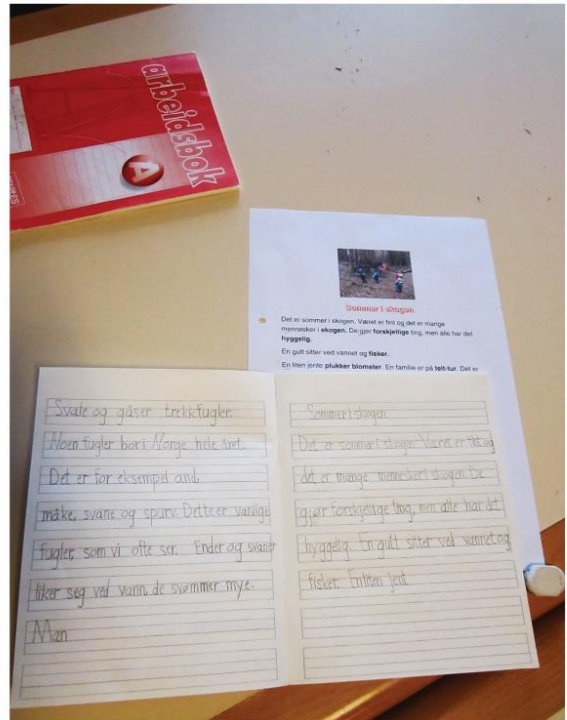 arbeidsbok
A
Sommer i skogen
Det er sommer i skogen. Været er fint og det er mange
mennesker i skogen. De gjør forskjellige ting, men alle har det
hyggelig.
En gutt sitter ved vannet og fisker.
En liten jente plukker blomster. En familie er på telt-tur. Det er
Svale og gåser trekkfugler.
Noen fugler bor i Norge hele året.
Det er for eksempel and,
måke, svane og spurv. Dette er vanlige
fugler, som vi ofte ser. Ender og svaner
liker seg ved vann, de svømmer mye.
Man
Sommer i skogen
Det er sommer i skogen. Været er fint og
det er mange mennesker i skogen. De
gjør forskjelige ting, men alle har det
hyggelig. En gutt sitter ved vannet og
fisker. En liten jent